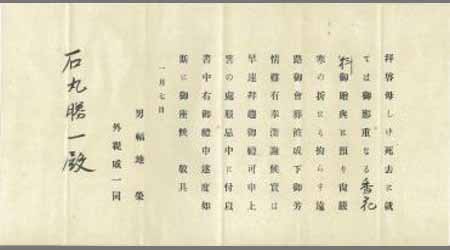 拝啓母しけ死去に就
ては御懇重なる香花
料御贈與に預り尚嚴
寒の折にも拘らす遠
路御會葬被成下御芳
情難有奉深謝候實は
早速拜趨御禮可申上
筈の處服忌中に付以
書中右御禮申述度如
斯に御座候 敬具
一月七日
男 福地榮
外親戚一同
石丸勝一殿